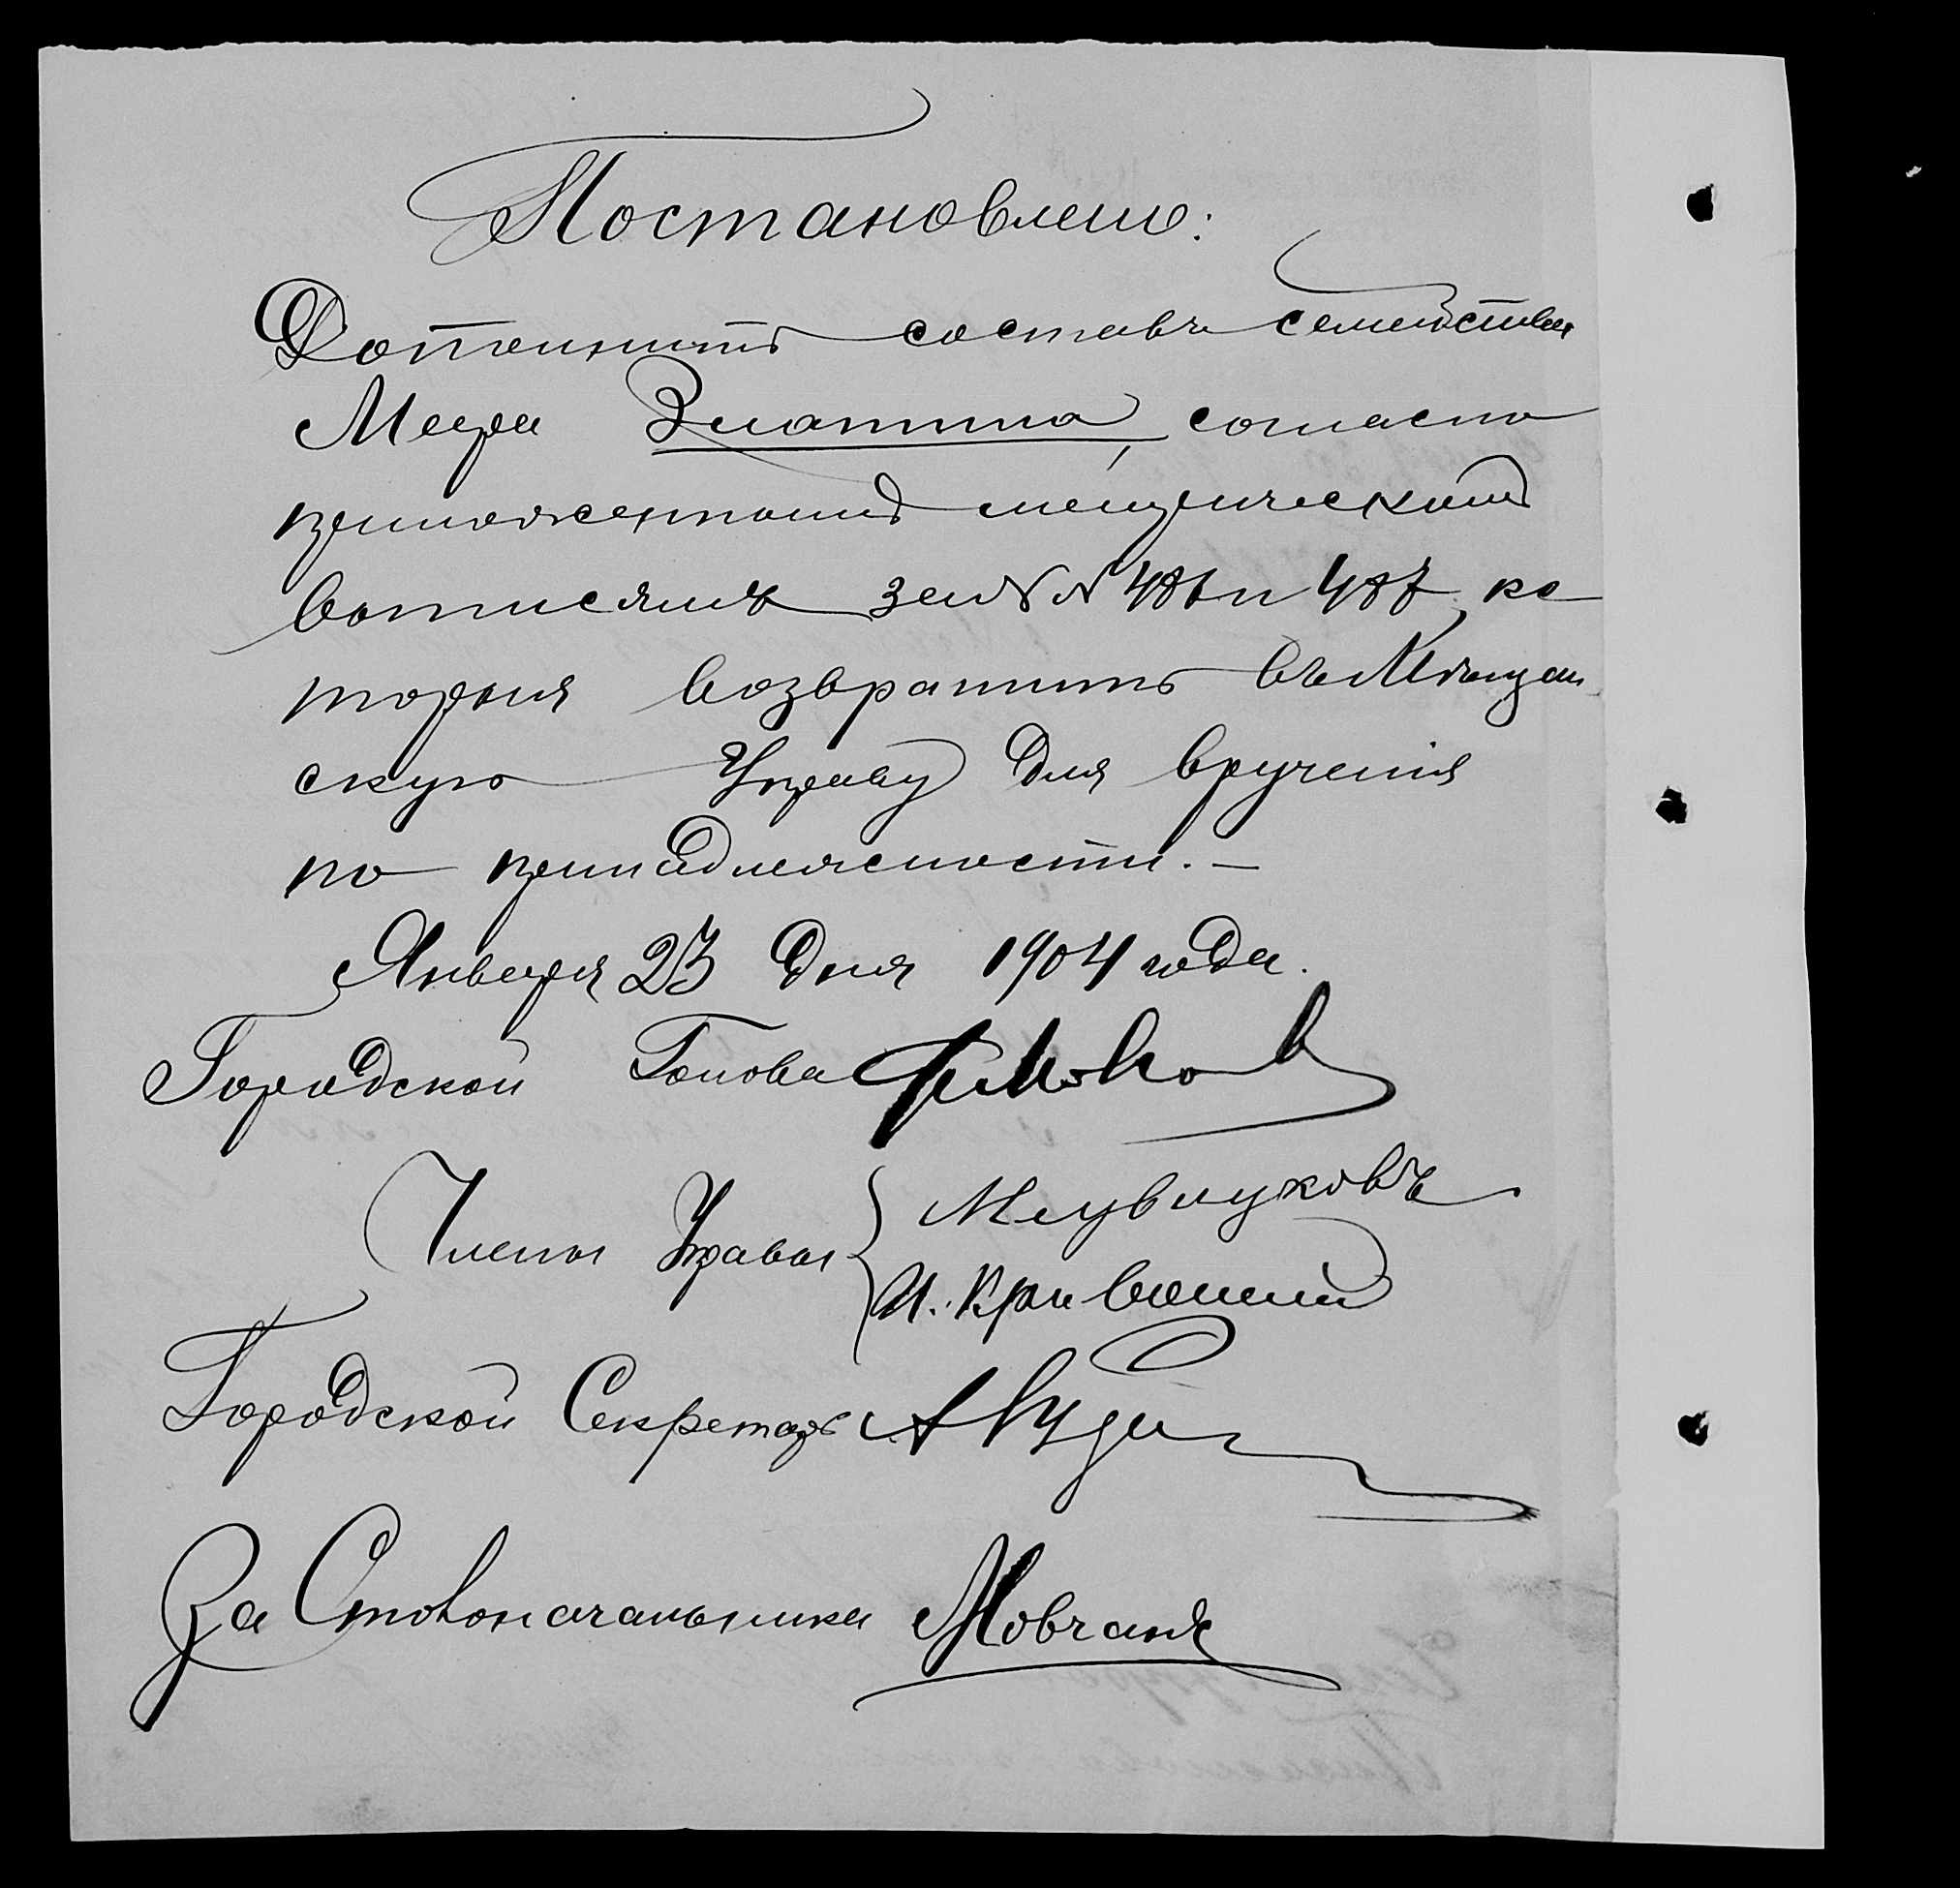 Постановлено:
Дополнить составъ семейства
Меера Златина, согласно
приложеннымъ метрическимъ
выписямъ за №№ 486 и 487, ко
торыя возвратить въ Мѣщан
скую Управу для врученія
по принадлежности. —
Января 23 дня 1904 года.
Городской Голова
Члены Управы
И. Кривошеий
Городской Секретарь
За Столоначальника Мовчанъ